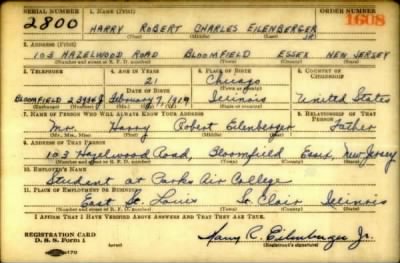 SERIAL NUMBER 1. NAME (Print) ORDER NUMBER
2800 HARRY ROBERT CHARLES EILENBERGER JR. 1608
(First) (Middle) (Last)
2. ADDRESS (Print)
103 HAZELWOOD ROAD BLOOMFIELD ESSEX NEW JERSEY
(Number and street or R. F. D. number) (Town) (County) (State)
3. TELEPHONE 4. AGE IN YEARS 5. PLACE OF BIRTH 6. COUNTRY OF CITIZENSHIP
21 Chicago
DATE OF BIRTH (Town or county)
BLOOMFIELD 2 February 7, 1919 Illinois United States
(Exchange) (Number) (Mo.) (Day) (Yr.) (State or country)
7. NAME OF PERSON WHO WILL ALWAYS KNOW YOUR ADDRESS 8. RELATIONSHIP OF THAT PERSON
Mr. Harry Robert Eilenberger Father
(Mr., Mrs., Miss) (First) (Middle) (Last)
9. ADDRESS OF THAT PERSON
103 Hazelwood Road, Bloomfield Essex, New Jersey
(Number and street or R. F. D. number) (Town) (County) (State)
10. EMPLOYER'S NAME
Student at Parks Air College
11. PLACE OF EMPLOYMENT OR BUSINESS
East St. Louis St. Clair Illinois
(Number and street or R. F. D. number) (Town) (County) (State)
I AFFIRM THAT I HAVE VERIFIED ABOVE ANSWERS AND THAT THEY ARE TRUE.
REGISTRATION CARD
D. S. S. Form 1 Harry R. Eilenberger Jr.
(over) (Registrant's signature)